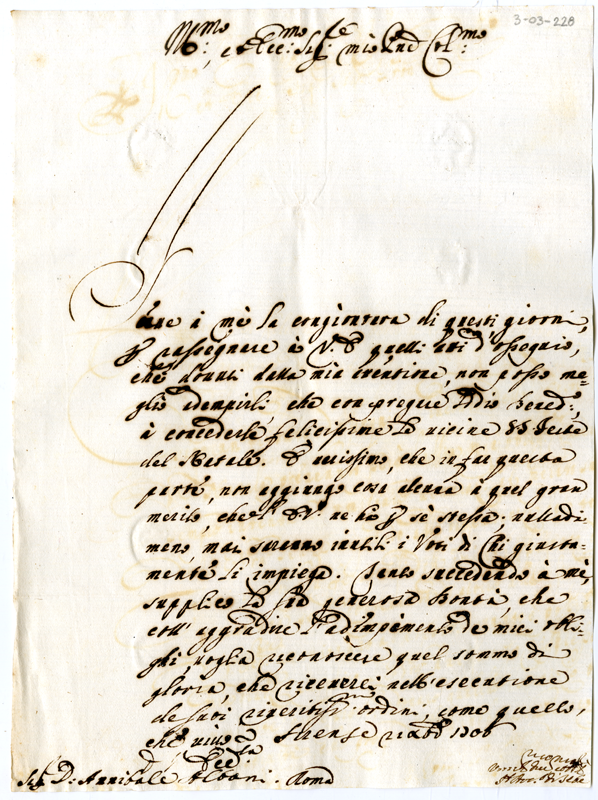 3-03-228
Ill:mo, et Ecc:mo Sig:re mio Pnd Col:mo
Serue à me la congiontura di questi giorni,
p rassegnare à V. E quelli atti d'ossequio,
che douuti dalla mia attentione, non posso me=
glio adempirli, che con pregare Iddio Bened:,
à concederle felicissime le uicine SS Feste
del Natale. È uerissimo, che in far questa
parte, non aggiungo cosa alcuna à quel gran
merito, che l'E V. ne hà p sè stessa; nulladi=
meno, mai saranno inutili i Voti di Chi giusta=
mente li impiega. Tanto succedendo à me,
supplico la sua generosa Bontà, che
coll' aggradire l'adimpimento de miei obbli=
ghi, uoglia riconoscere quel sommo di
gloria, che riceuerei nell'esecutione
de suoi riueritiss:mi ordini, come quello,
che uiuo
Firense 1706
Sig: D: Annibale Albani. Roma